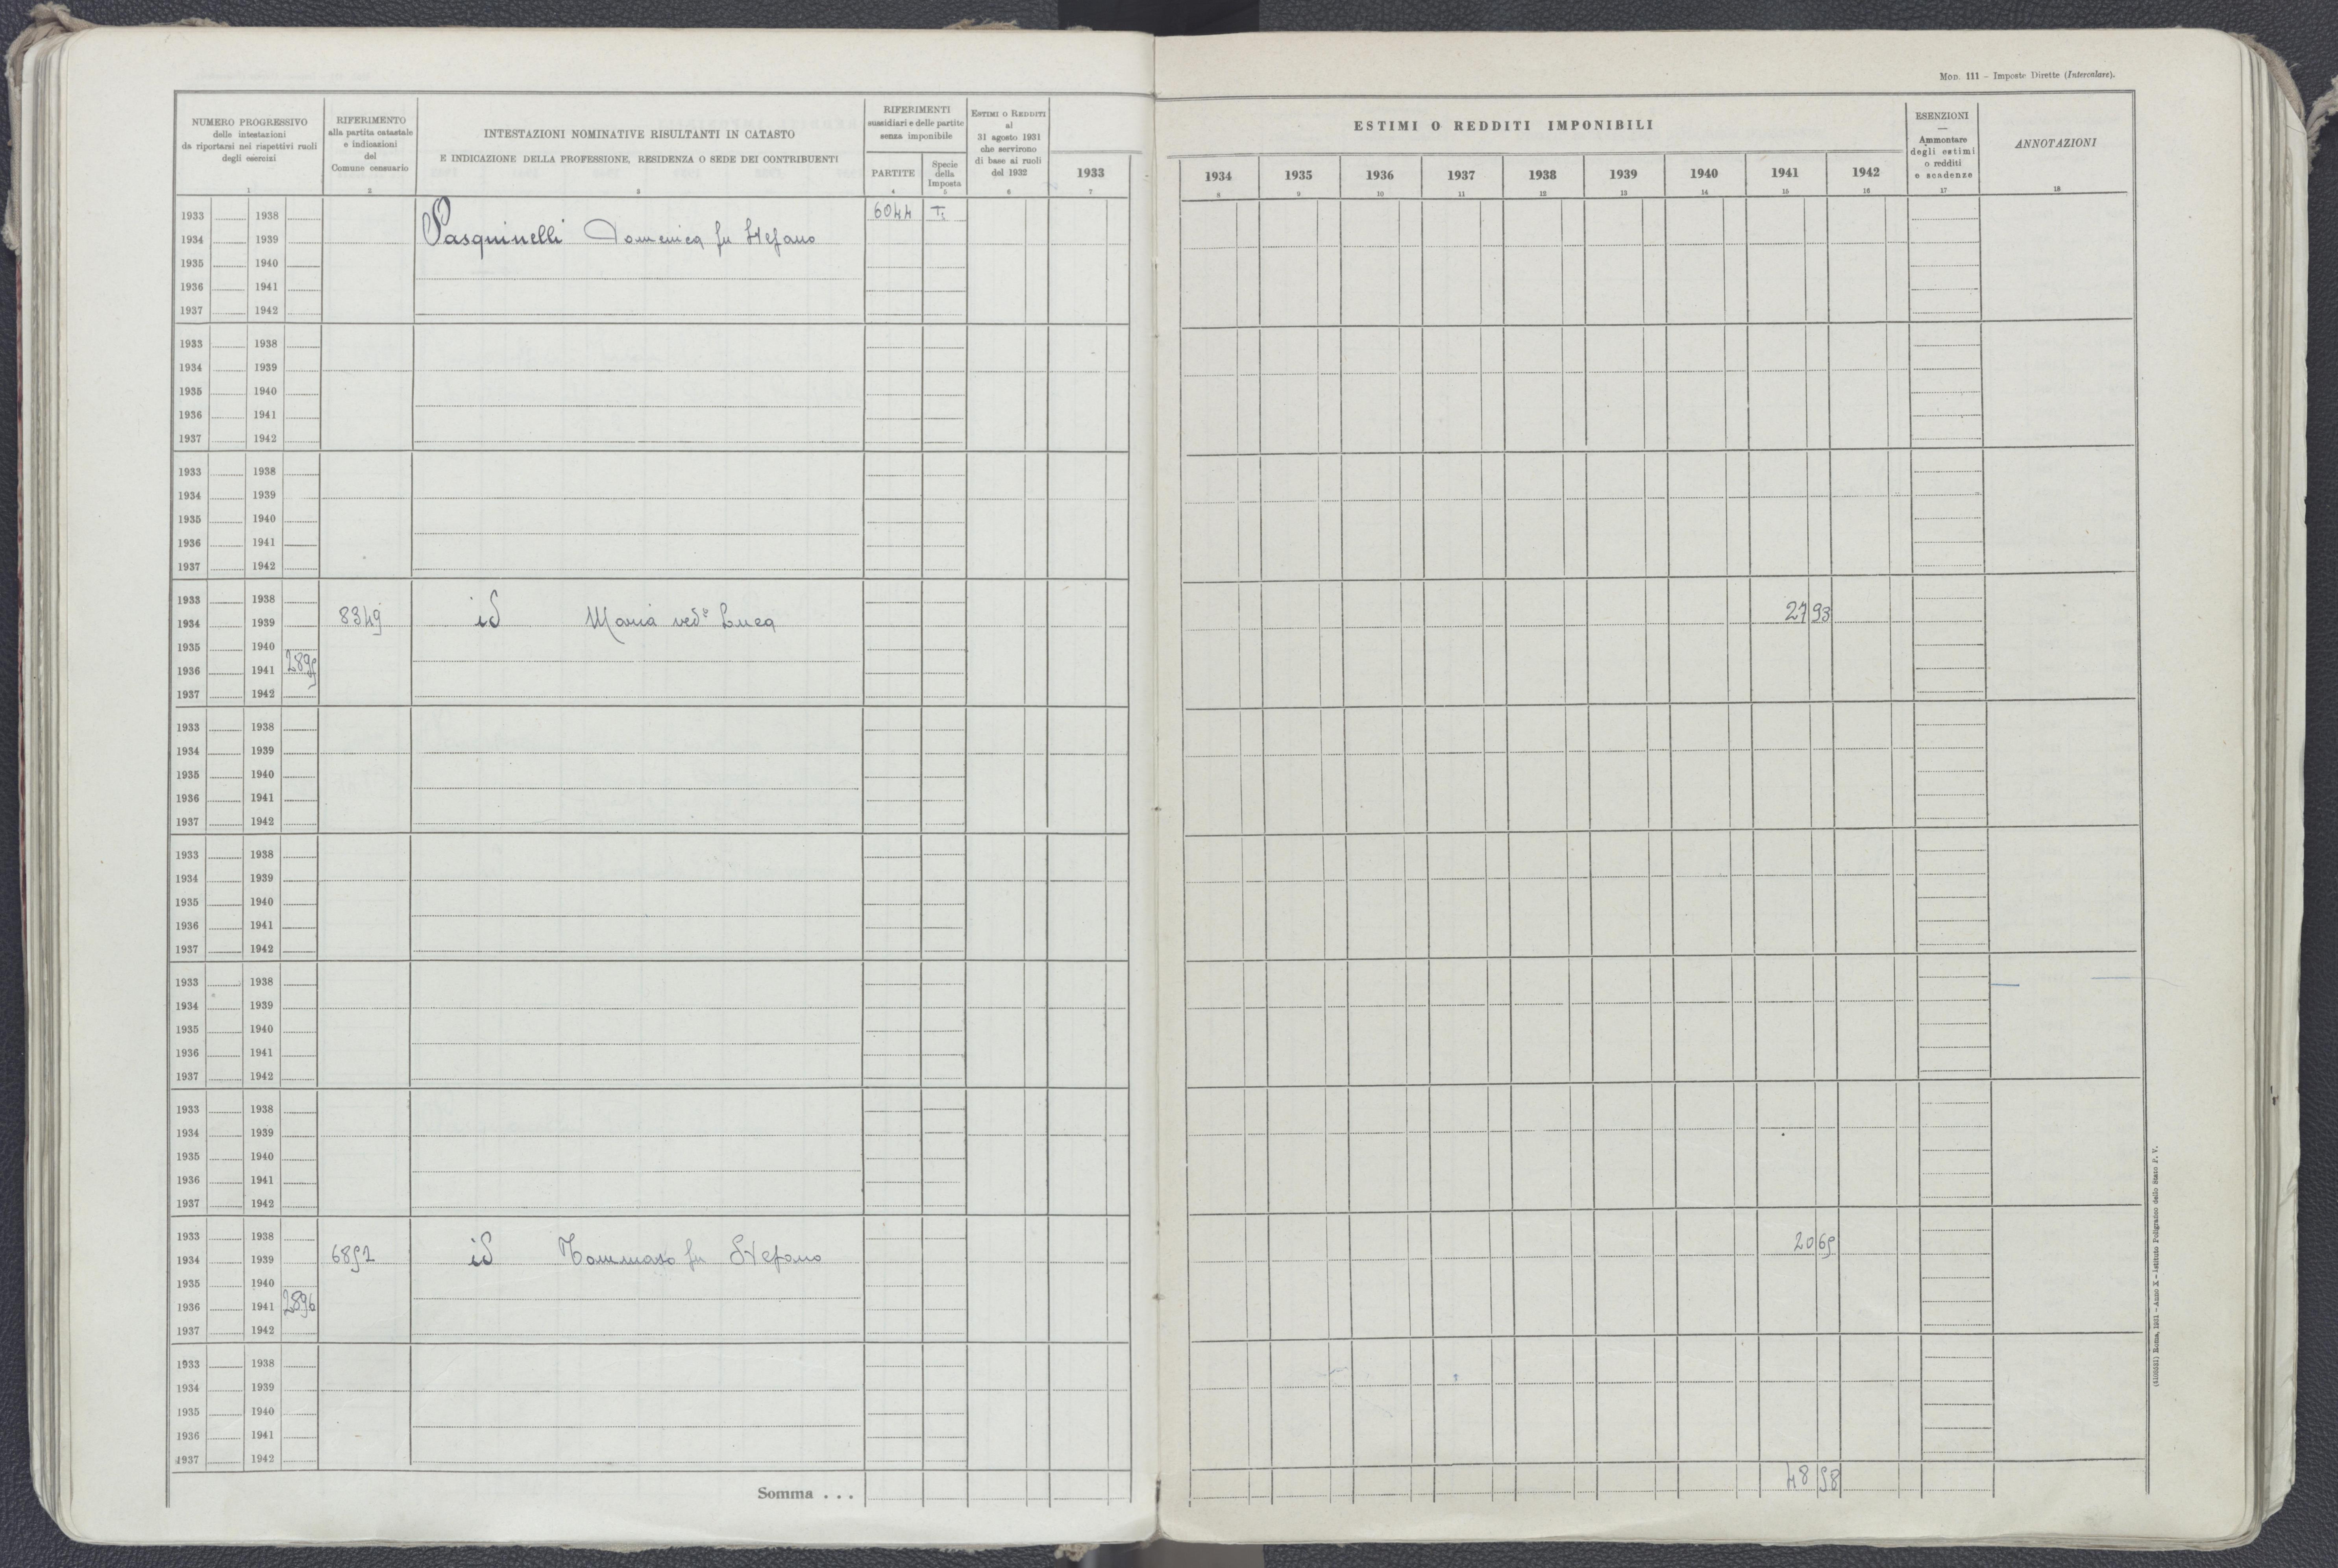 MOD. 111 – Imposte Dirette (Intercalare).
NUMERO PROGRESSIVO
delle intestazioni
da riportarsi nei rispettivi ruoli
degli esercizi
1
RIFERIMENTO
alla partita catastale
e indicazioni
del
Comune censuario
2
INTESTAZIONI NOMINATIVE RISULTANTI IN CATASTO
E INDICAZIONE DELLA PROFESSIONE, RESIDENZA O SEDE DEI CONTRIBUENTI
3
RIFERIMENTI
sussidiari e delle partite
senza imponibile
PARTITE
4
Specie
della
Imposta
5
ESTIMI O REDDITI
al
31 agosto 1931
che servirono
di base ai ruoli
del 1932
6
1933
7
ESTIMI O REDDITI IMPONIBILI
1934 1935 1936 1937 1938 1939 1940 1941 1942
8 9 10 11 12 13 14 15 16
ESENZIONI
—
Ammontare
degli estimi
o redditi
e scadenze
17
ANNOTAZIONI
18
1933 1938 6044 T.
1934 1939 Pasquinelli Domenica fu Stefano
1935 1940
1936 1941
1937 1942
1933 1938
1934 1939
1935 1940
1936 1941
1937 1942
1933 1938
1934 1939
1935 1940
1936 1941
1937 1942
1933 1938
1934 1939 8349 id Maria ved° Luca 27 93
1935 1940
1936 1941 2895
1937 1942
1933 1938
1934 1939
1935 1940
1936 1941
1937 1942
1933 1938
1934 1939
1935 1940
1936 1941
1937 1942
1933 1938
1934 1939
1935 1940
1936 1941
1937 1942
1933 1938
1934 1939
1935 1940
1936 1941
1937 1942
1933 1938
1934 1939 6852 id Tommaso fu Stefano 20 65
1935 1940
1936 1941 2896
1937 1942
1933 1938
1934 1939
1935 1940
1936 1941
1937 1942
Somma . . . 48 58
(4103521) Roma, 1931 – Anno X – Istituto Poligrafico dello Stato P. V.